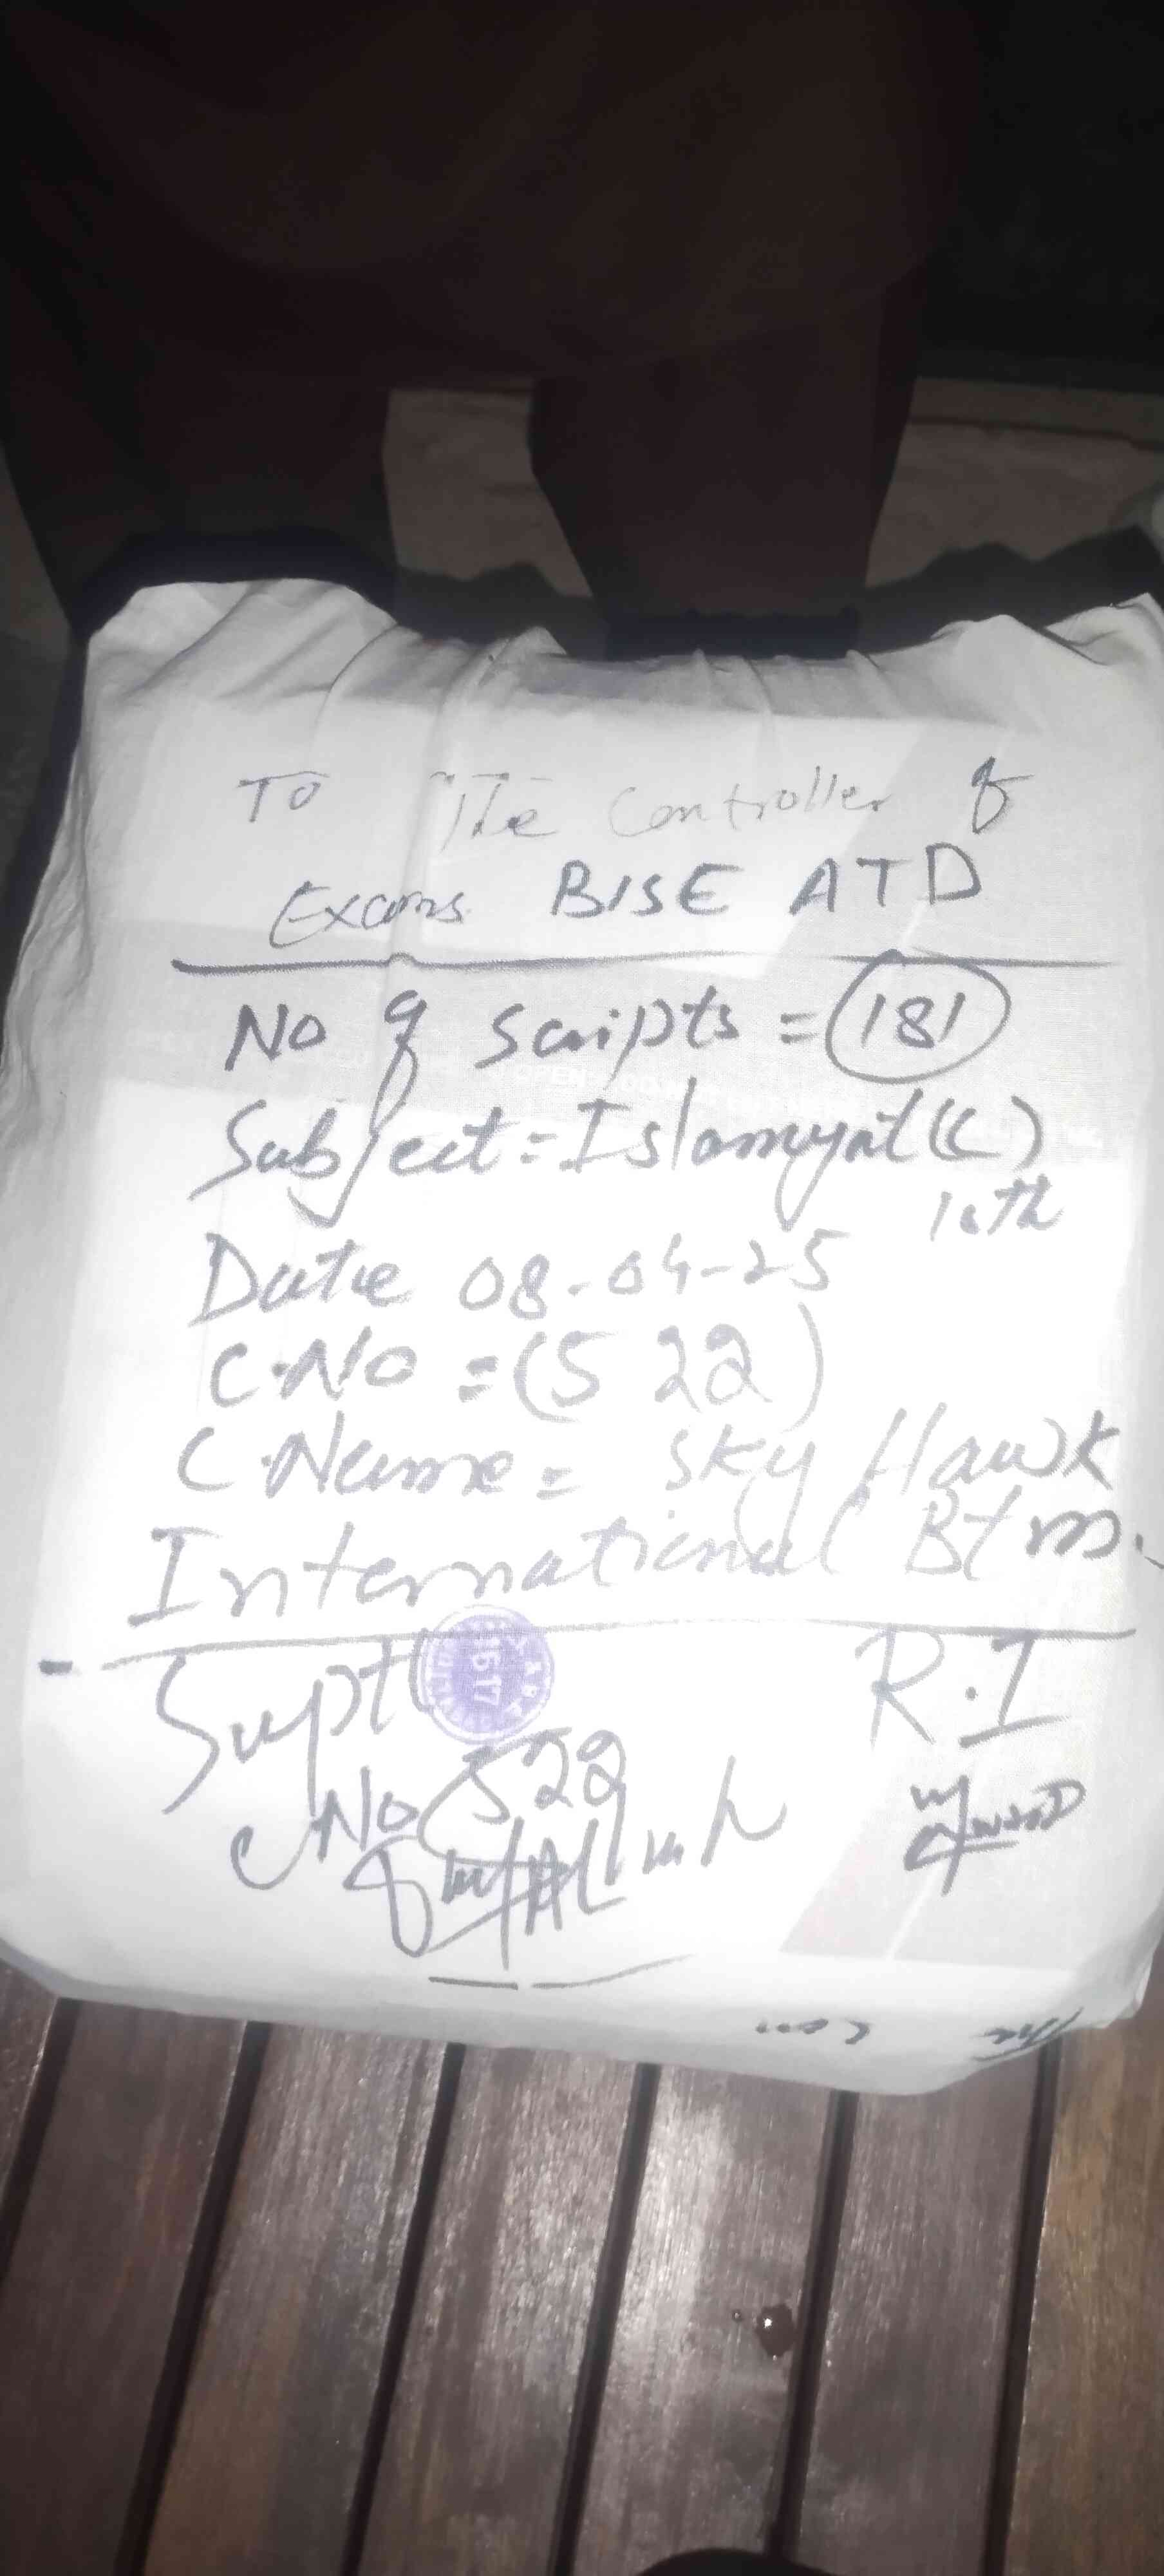 To The Controller of
Exams. BISE ATD
No of Scripts = (181)
Subject = Islamyat (C)
10th
Date 08-04-25
C.No = (522)
C.Name = Sky Hawk
International Btm.
Supt R.I
C No 522